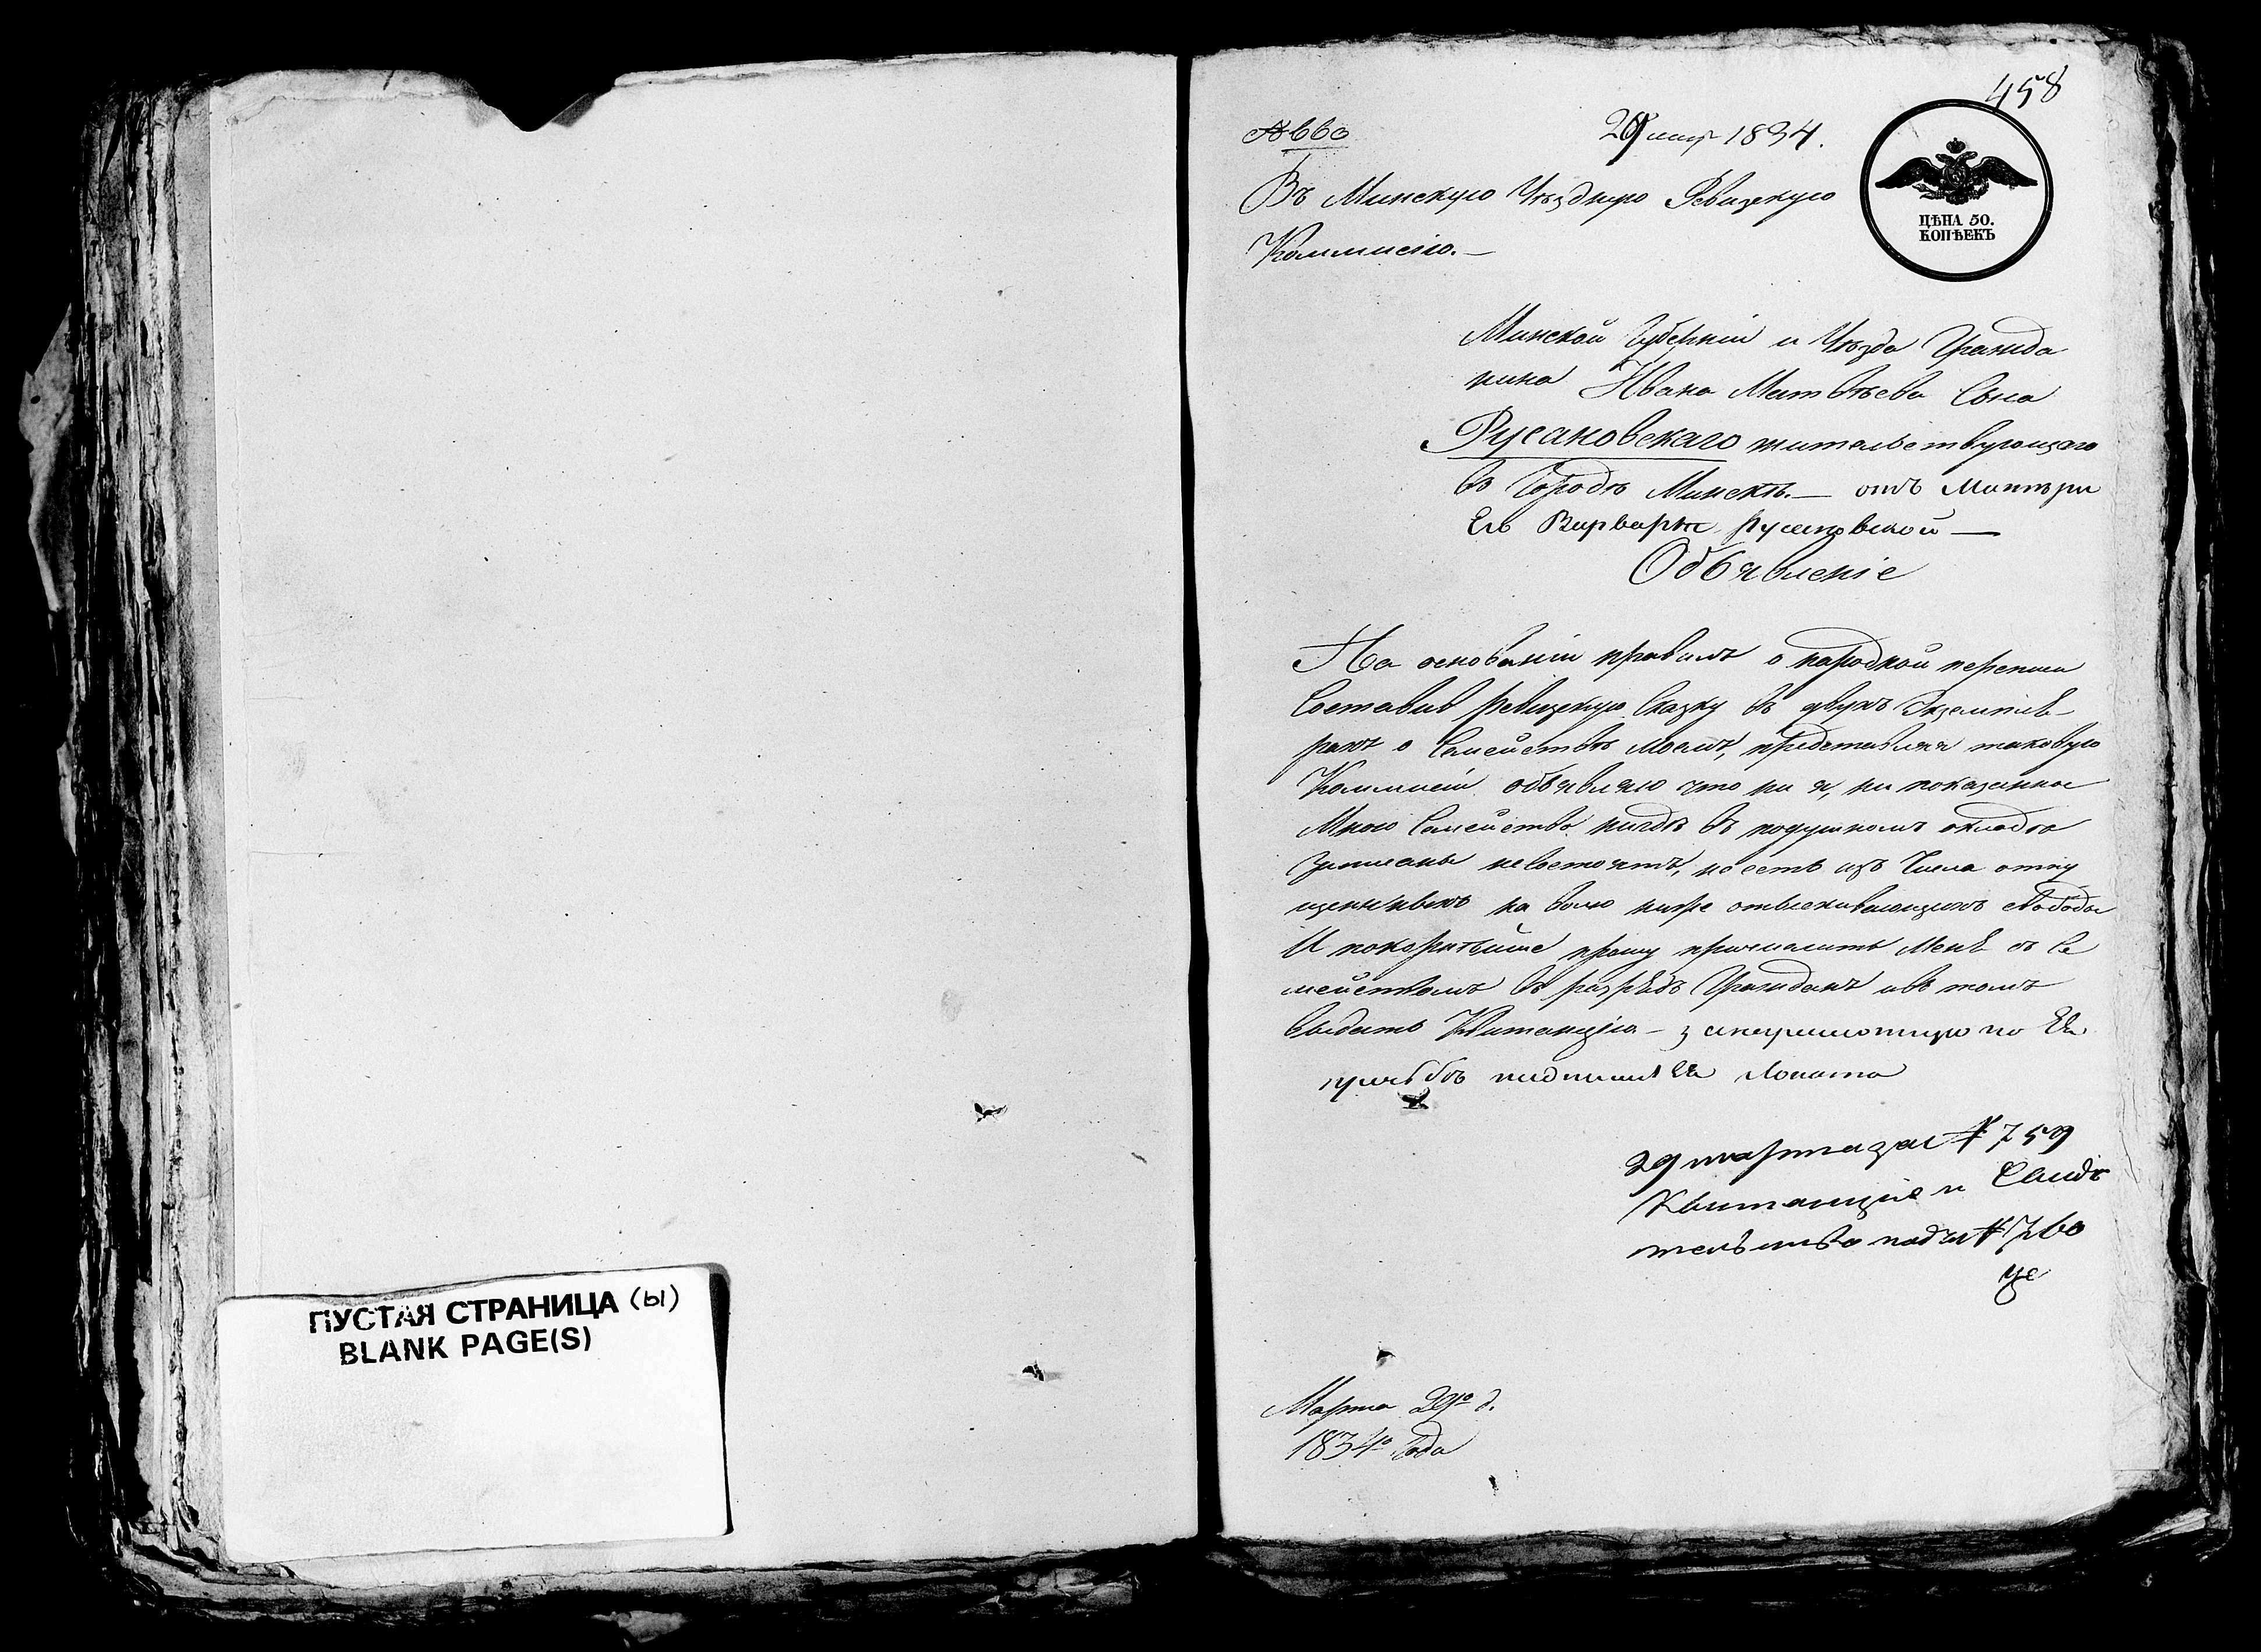 ПУСТАЯ СТРАНИЦА (ы)
BLANK PAGE(S)
458
№ 660
29 мар 1834.
ЦѢНА 50.
КОПѢЕКЪ
Въ Минскую Уѣздную Ревизскую
Коммисію.—
Минской Губерніи и Уѣзда Гражда
нина Ивана Матвѣева Сына
Русановскаго жительствующаго
въ Городѣ Минскѣ.— отъ Маттери
Его Варвары Русановской —
Объявленіе
На основаніи правилъ о народной переписи
Составивъ Ревизскую Сказку въ двухъ Экземпля-
рахъ о Семействѣ Моемъ, представляя таковую
Коммисіи объявляю что ни я, ни показанное
Мною Семейство нигдѣ въ подушномъ окладѣ
записаны несостоятъ, но есть изъ Числа отпу
щенныхъ на волю отыскивающихъ свободы
И покорнѣйше прошу причислить Меня съ Се
мействомъ въ разрядъ Гражданъ и въ томъ
выдать Квитанцію — за неграмотную по Ея
прозьбѣ подписалъ
29 марта за № 759
Квитанціе и Свидѣ
тельство подъ № 760
Марта 29го д.
1834го Года